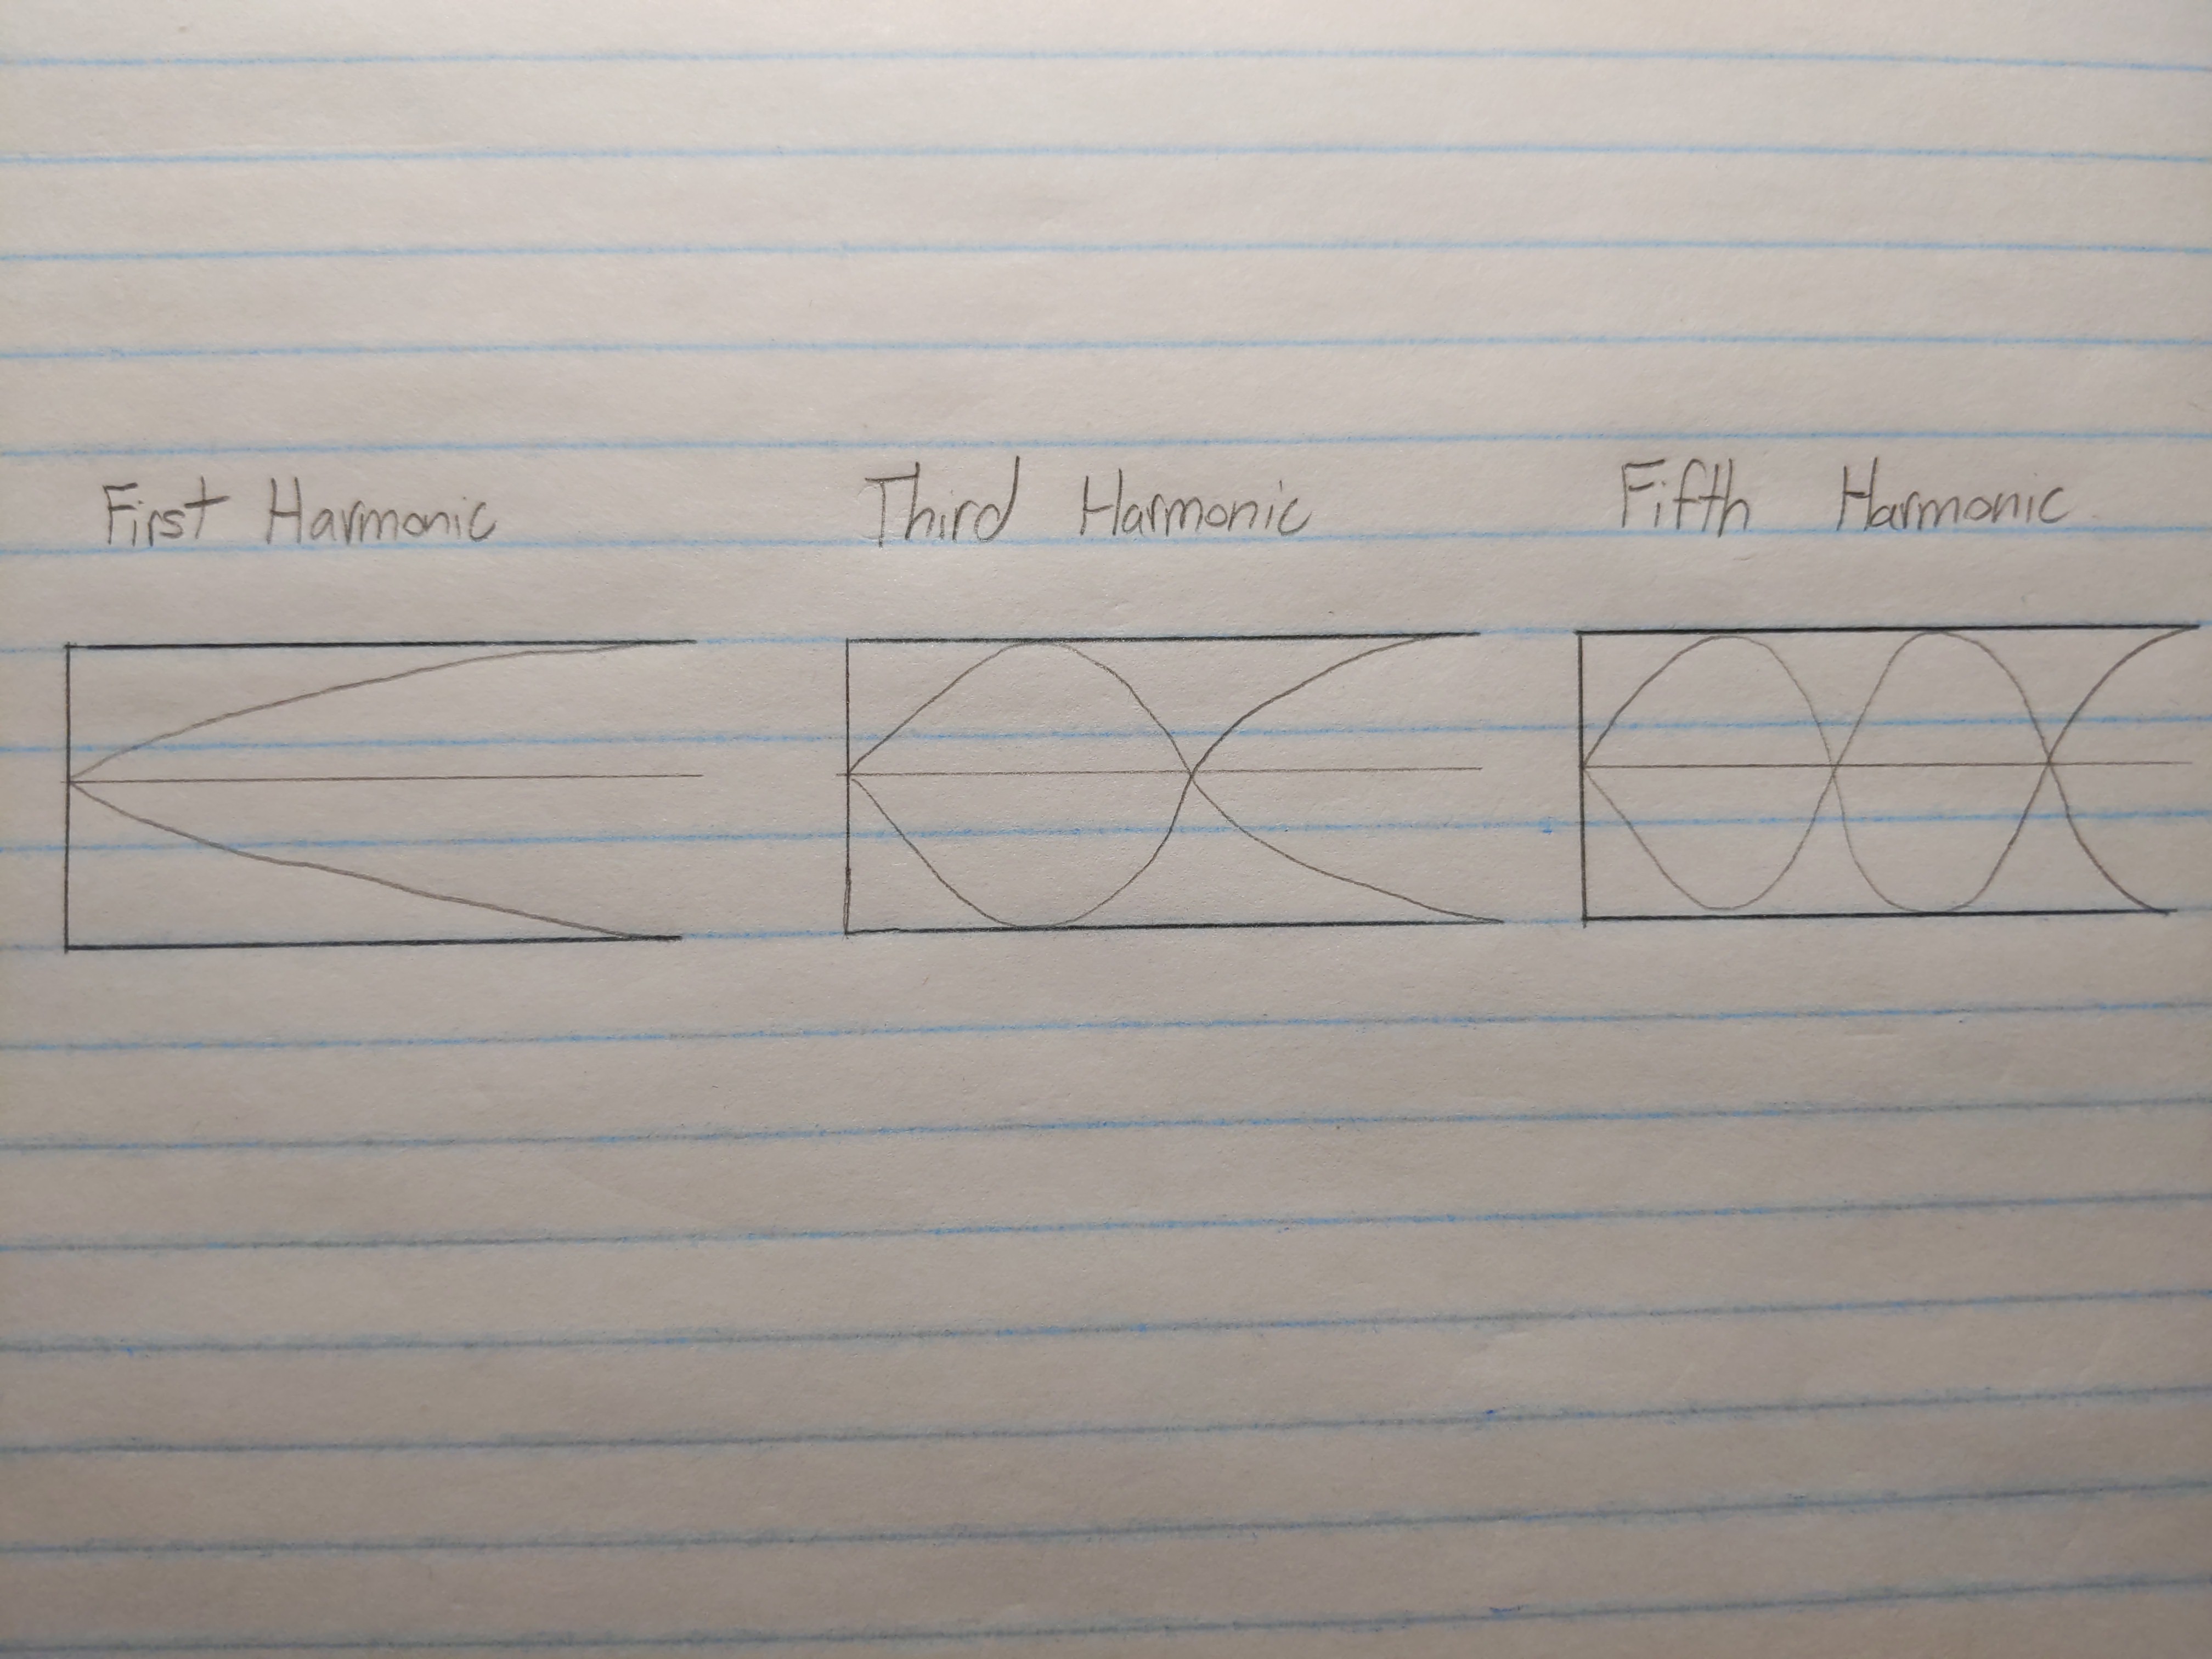 First Harmonic
Third Harmonic
Fifth Harmonic